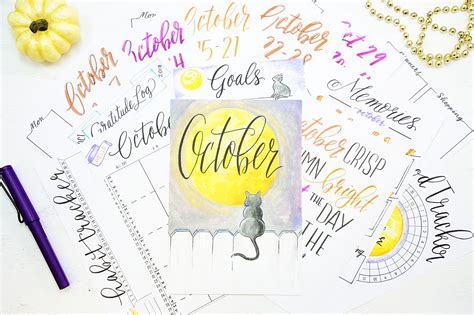 Mon
October
October
15-21
October
22-28
Oct 29
Mon
October
Gratitude Log
2018
Goals
Memories
October
Shopping
October
October
October
CRISP
bright
THE
DAY
THE
Habit tracker
Tracker